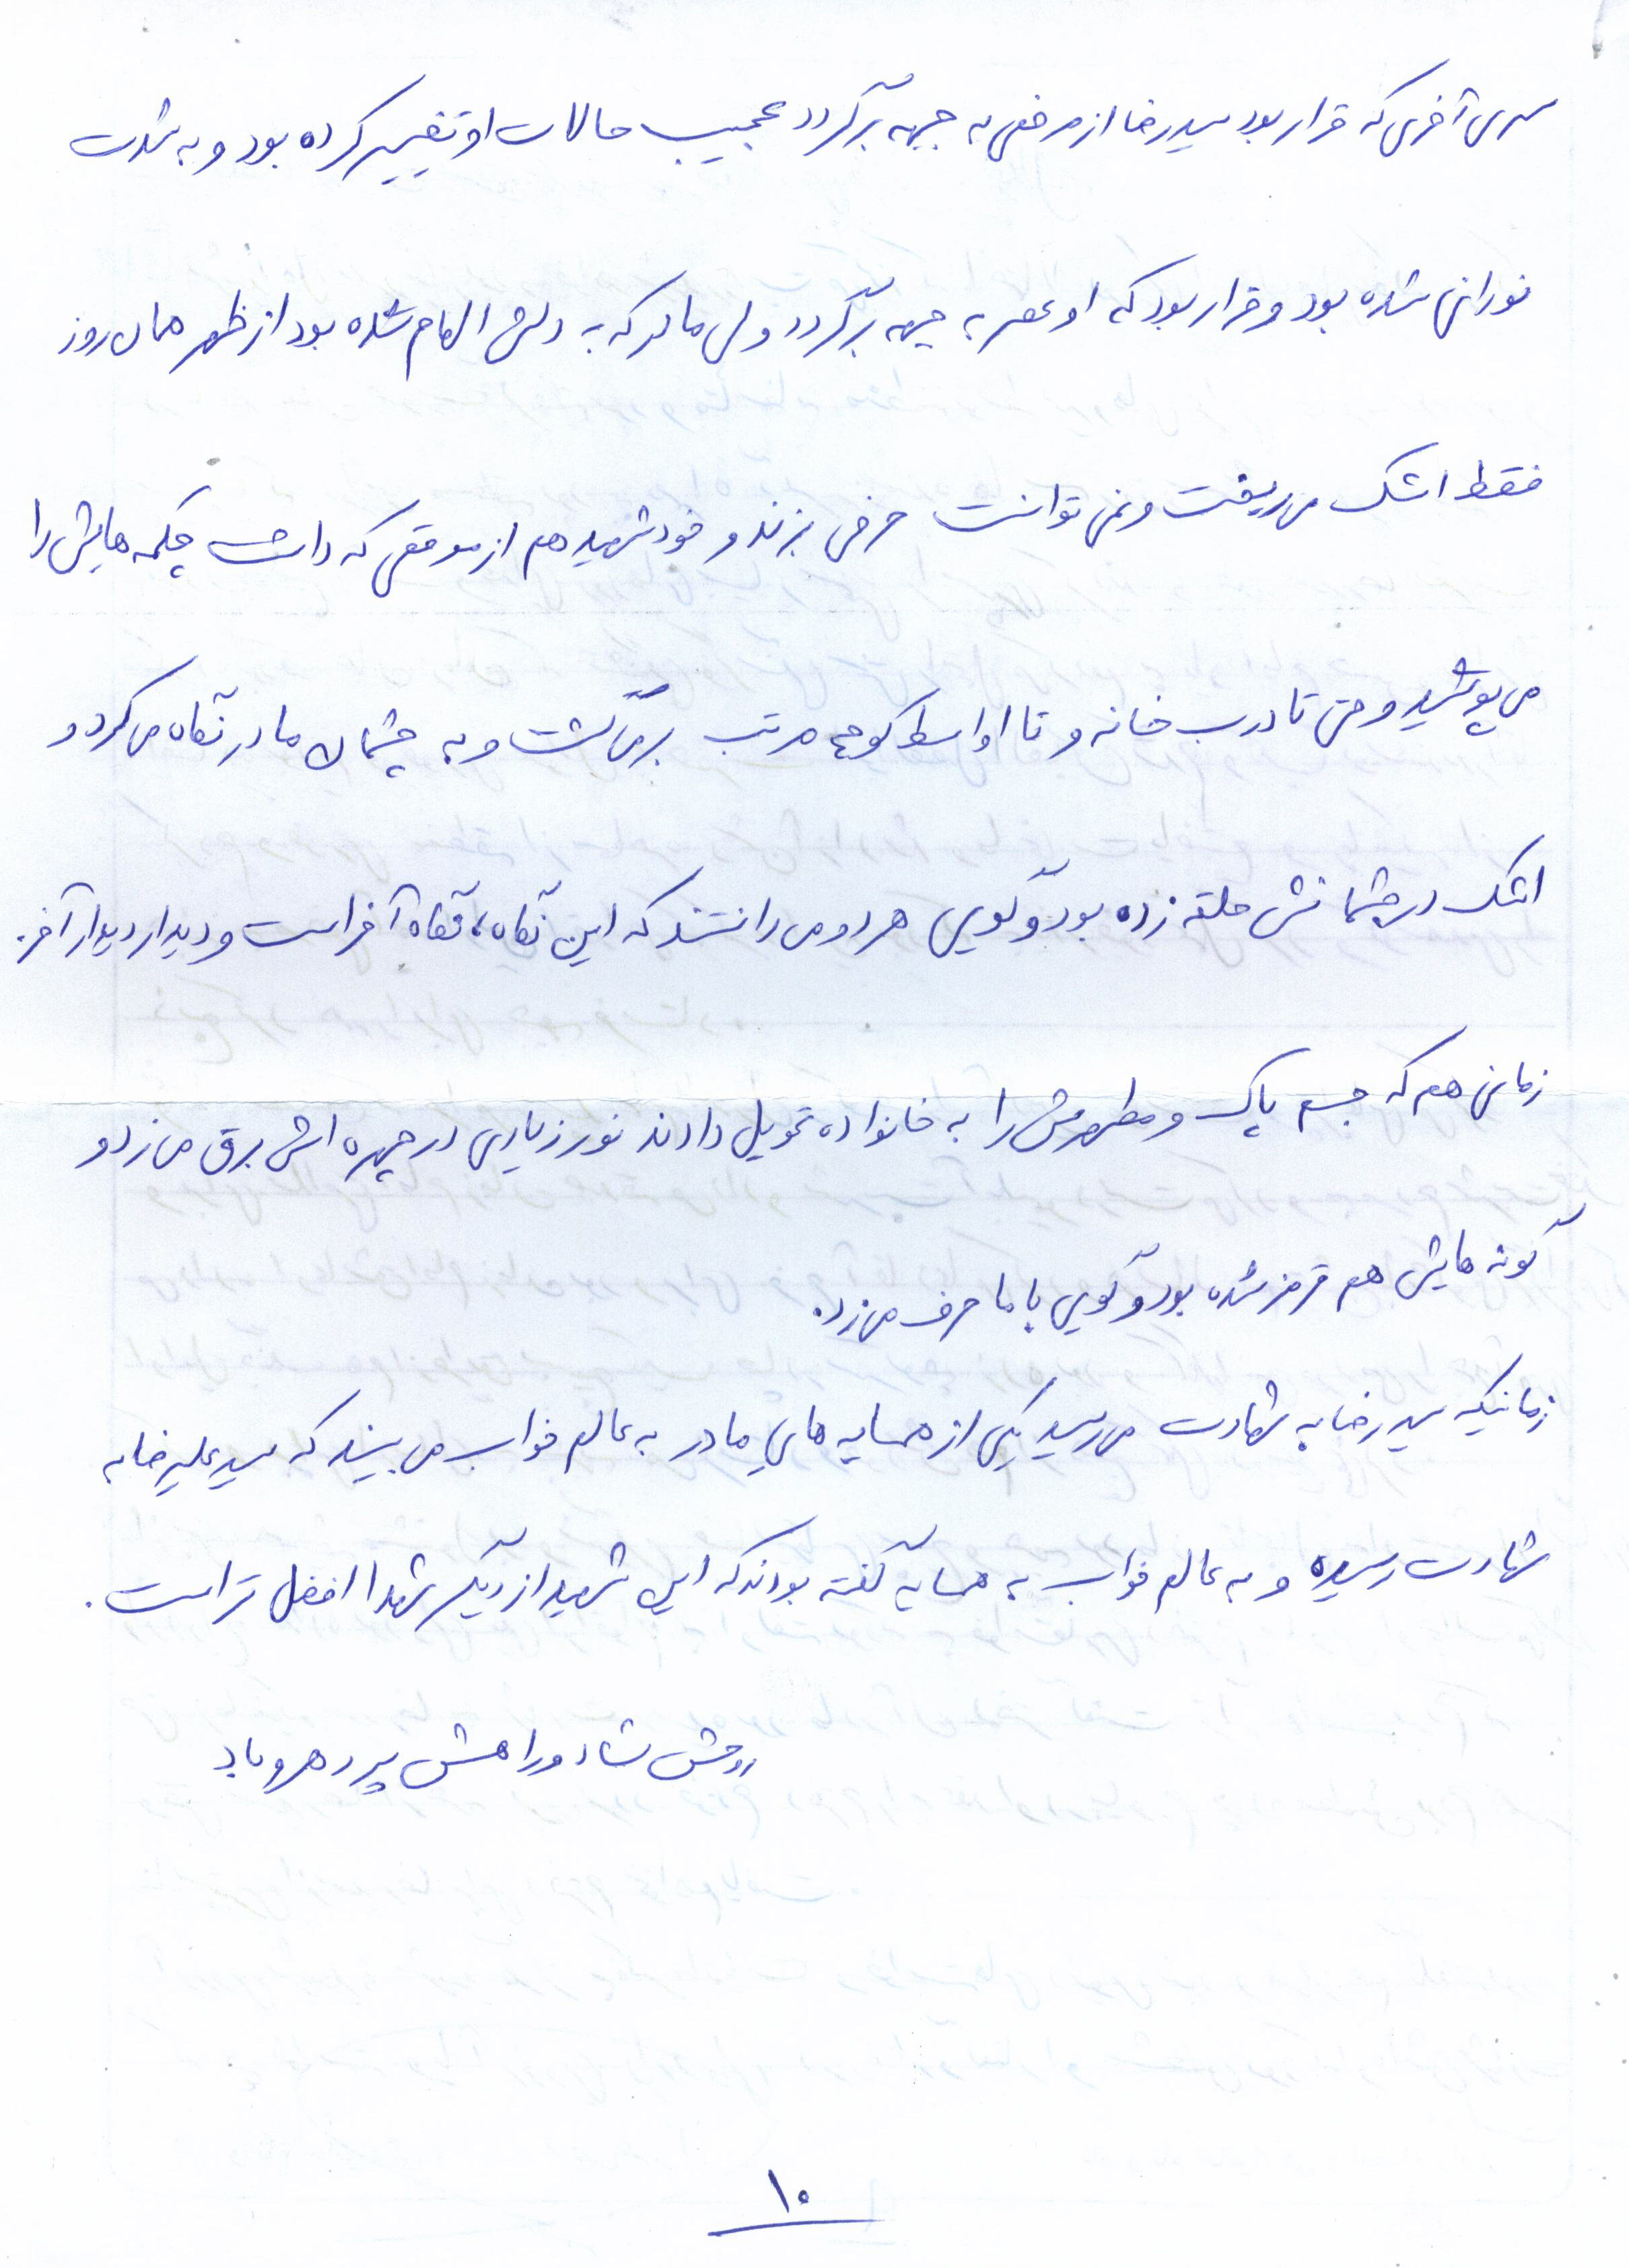 سری آخری که قرار بود سیدرضا از مرخصی به جبهه برگردد عجیب حالات او تغییر کرده بود و به شدت
نورانی شده بود و قرار بود که او عصر به جبهه برگردد ولی مادر که به دلش الهام شده بود از ظهر همان روز
فقط اشک می ریخت و نمی توانست حرفی بزند و خود شهید هم از موقعی که داشت چکمه هایش را
می پوشید و حتی تا درب خانه و تا اواسط کوچه مرتب برمی گشت و به چشمان مادر نگاه می کرد و
اشک در چشمانش حلقه زده بود و گویی هر دو می دانستند که این نگاه، نگاه آخر است و دیدار دیدار آخر.
زمانی هم که جسم پاک و مطهرش را به خانواده تحویل دادند نور زیادی در چهره اش برق می زد و
گونه هایش هم قرمز شده بود و گویی با ما حرف می زد.
زمانیکه سیدرضا به شهادت می رسید یکی از همسایه های مادر به عالم خواب می بیند که سید علیرضا به
شهادت رسیده و به عالم خواب به همسایه گفته بودند که این شهید از دیگر شهدا افضل تر است.
روحش شاد و راهش پر رهرو باد
۱۰